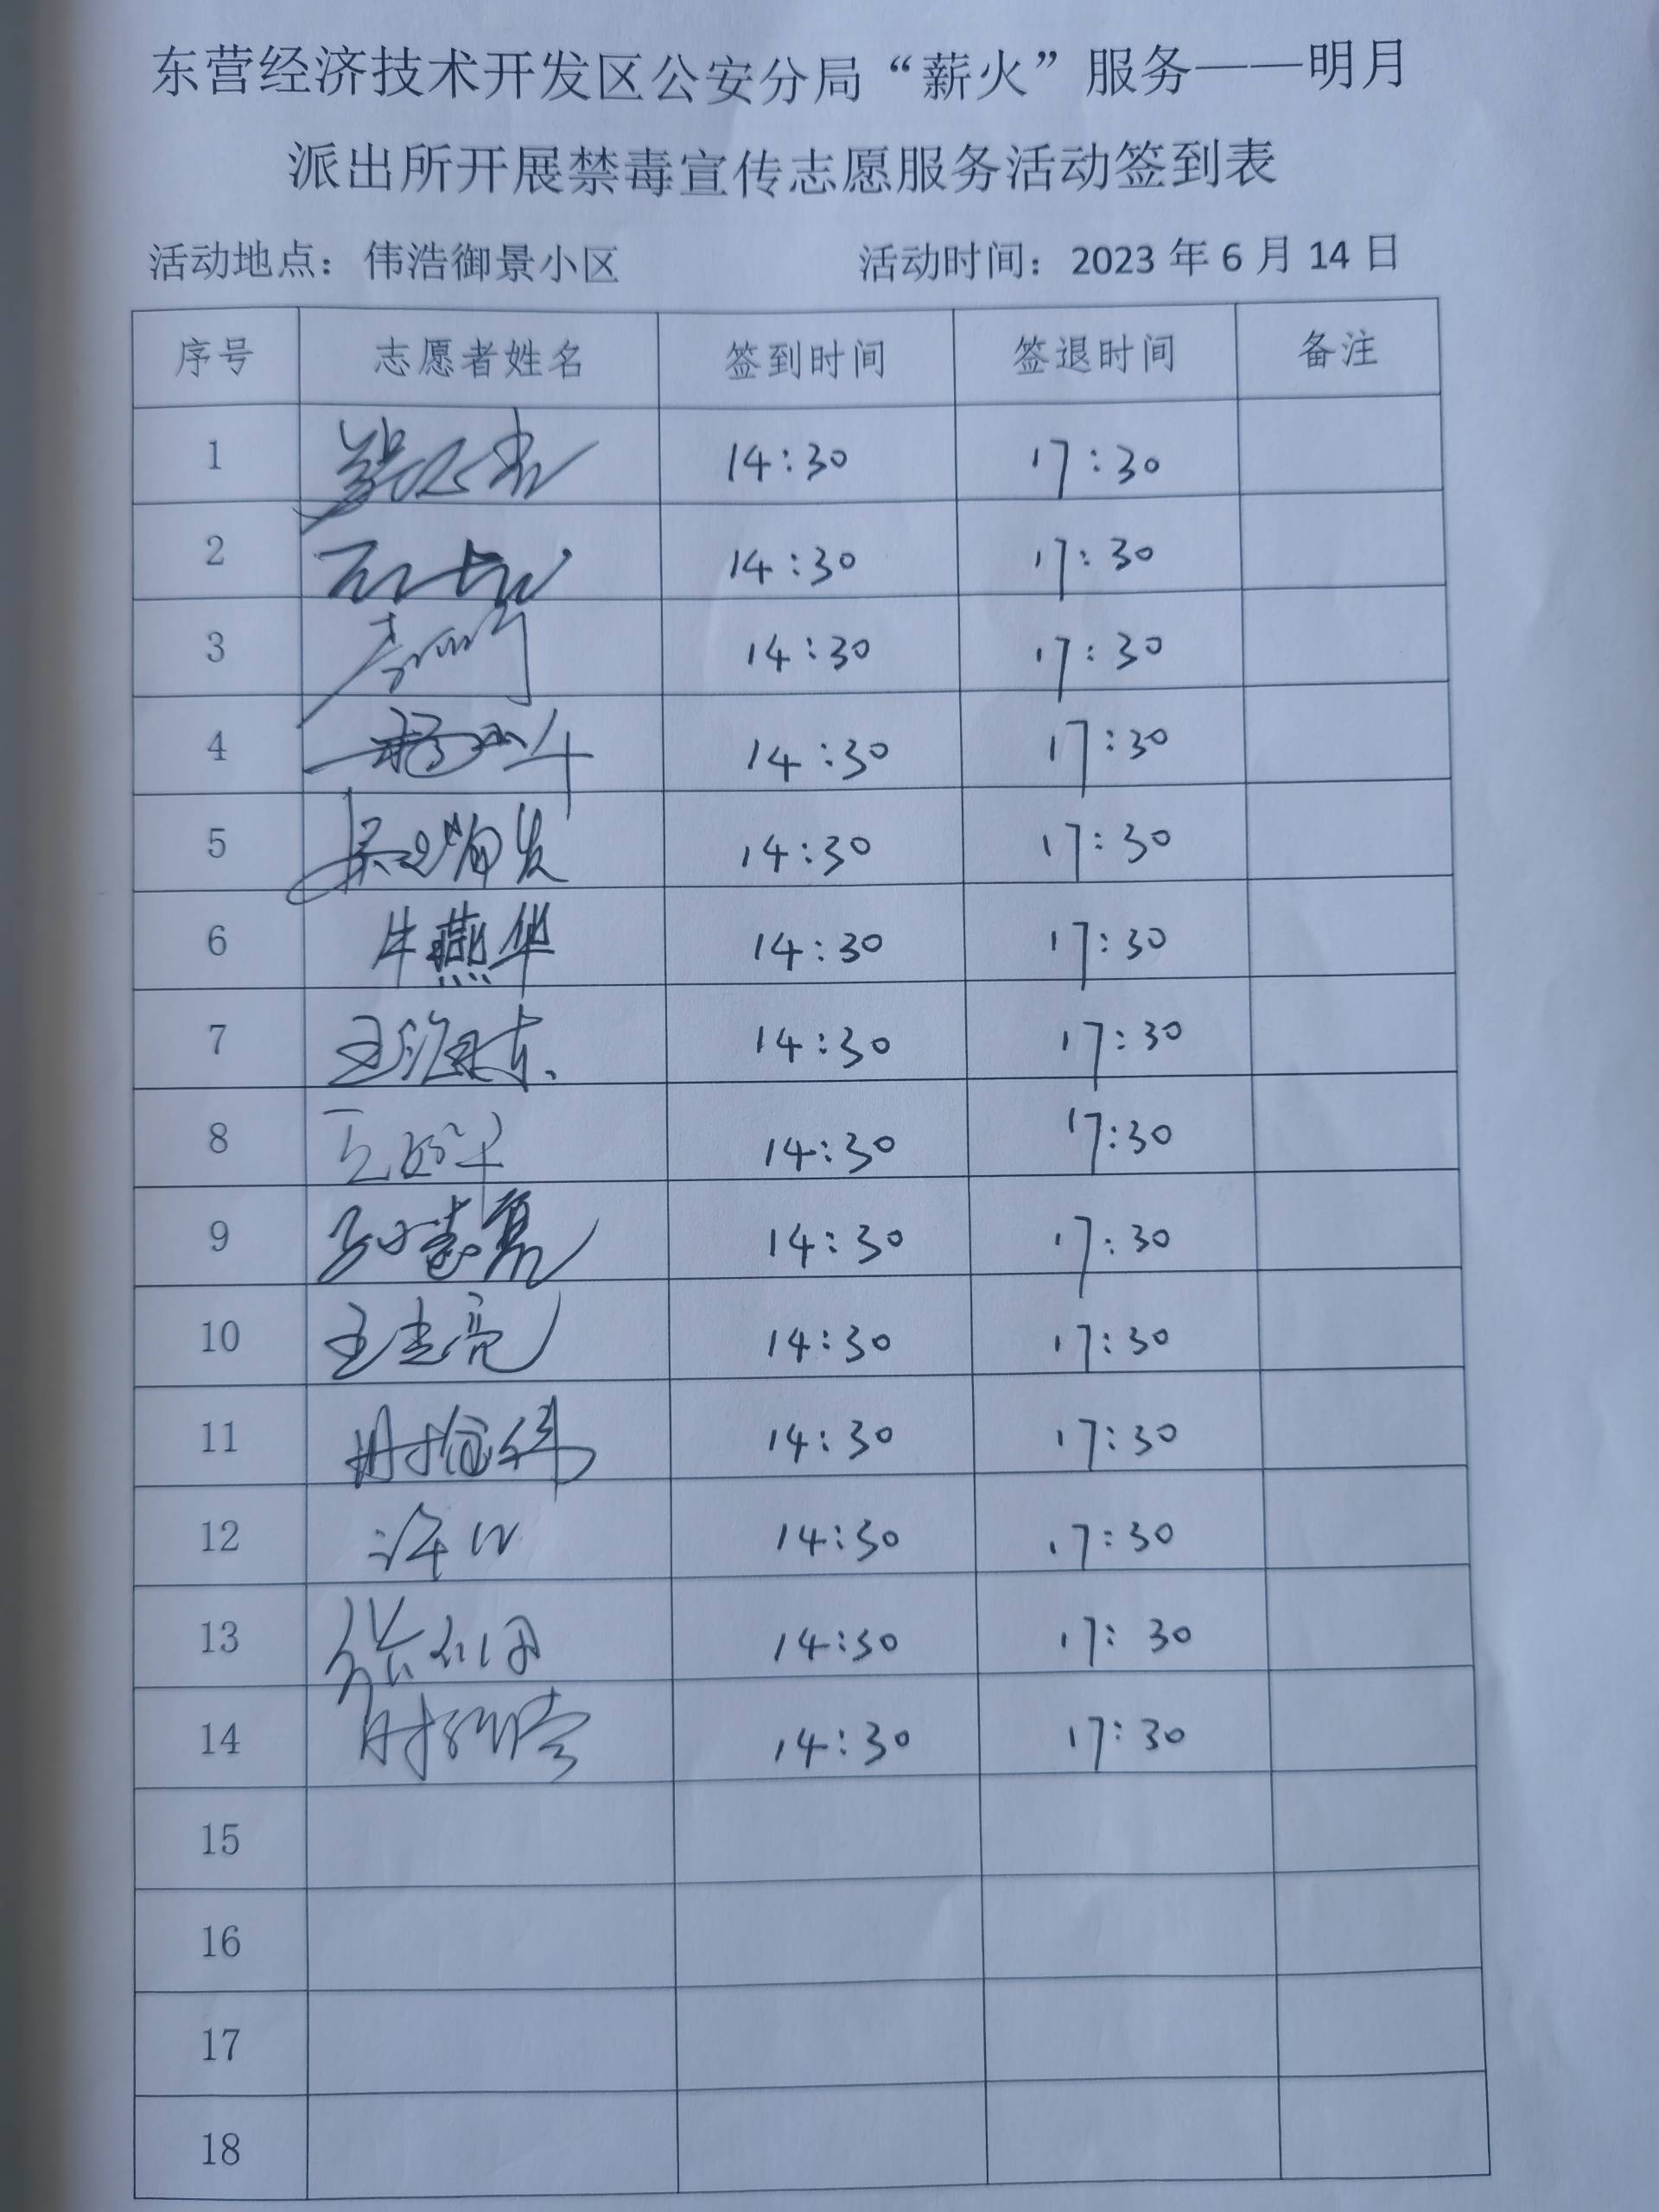 东营经济技术开发区公安分局“薪火”服务——明月
派出所开展禁毒宣传志愿服务活动签到表
活动地点：伟浩御景小区 活动时间：2023 年 6 月 14 日
序号 志愿者姓名 签到时间 签退时间 备注
1 14:30 17:30
2 14:30 17:30
3 14:30 17:30
4 14:30 17:30
5 14:30 17:30
6 牛燕华 14:30 17:30
7 14:30 17:30
8 14:30 17:30
9 14:30 17:30
10 王志亮 14:30 17:30
11 14:30 17:30
12 14:30 17:30
13 14:30 17:30
14 14:30 17:30
15
16
17
18